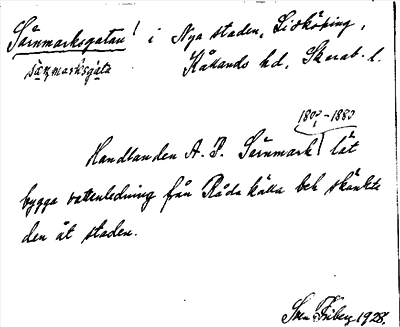 Särnmarksgatan! i Nya staden, Lidköping,
särnmarksgata Kållands hd, Skarab. l.
1802-1880
Handlanden A. P. Särnmark lät
bygga vattenledning från Råda källa och skänkte
den åt staden.
Sven Friberg 1928.